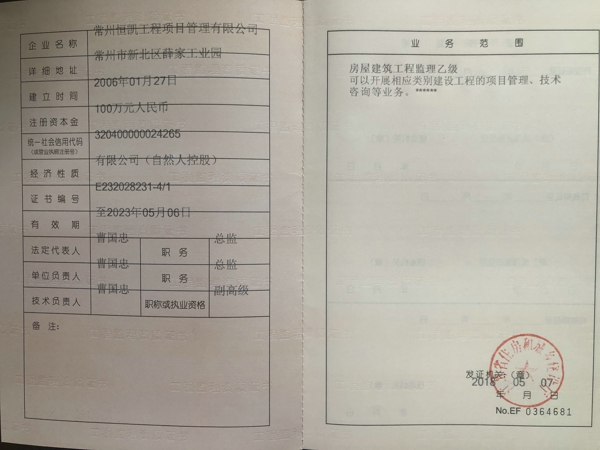 企业名称 常州恒凯工程项目管理有限公司
详细地址 常州市新北区薛家工业园
建立时间 2006年01月27日
注册资本金 100万元人民币
统一社会信用代码 320400000024265
(或营业执照注册号)
经济性质 有限公司（自然人控股）
证书编号 E232028231-4/1
有效期 至2023年05月06日
法定代表人 曹国忠 职务 总监
单位负责人 曹国忠 职务 总监
技术负责人 曹国忠 职称或执业资格 副高级
备注：
业务范围
房屋建筑工程监理乙级
可以开展相应类别建设工程的项目管理、技术
咨询等业务。******
发证机关：（章）
2018 05 07
年 月 日
No.EF 0364681